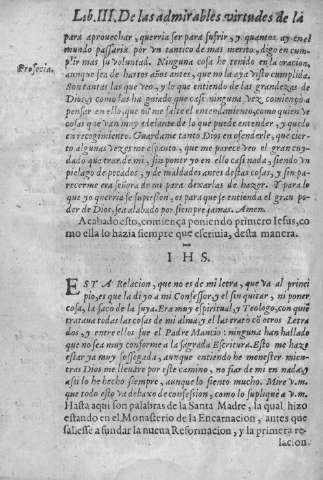 Lib. III. De las admirables virtudes de la
para aprouechar, querria ser para sufrir, y quantos ay en el
mundo passaria por vn tantico de mas merito, digo en cum-
plir mas su voluntad. Ninguna cosa he tenido en la oracion,
Profecia.
aunque sea de hartos años antes, que no la aya visto cumplida.
Son tantas las que veo, y lo que entiendo de las grandezas de
Dios, y como las ha guiado que casi ninguna vez comienço a
pensar en ello, que no me falte el entendimiento, como quien ve
cosas que van muy adelante de lo que puede entender, y quedo
en recogimiento. Guardame tanto Dios en ofenderle, que cier-
to algunas vezes me espanto, que me parece veo el gran cuy-
dado que trae de mi, sin poner yo en ello casi nada, siendo vn
pielago de pecados, y de maldades antes destas cosas, y sin pa-
recerme era señora de mi para dexarlas de hazer. Y para lo
que yo querria se supiessen, es para que se entienda el gran po-
der de Dios, sea alabado por siempre jamas. Amen.
Acabado esto, comiença poniendo primero Iesus, co-
mo ella lo hazia siempre que escriuia, desta manera.
IHS.
ESTA Relacion, que no es de mi letra, que va al princi-
pio, es que la di yo a mi Confessor, y el sin quitar, ni poner
cosa, la saco de la suya. Era muy espiritual, y Teologo, con quiē
trataua todas las cosas de mi alma, y el las trato cō otros Letra
dos, y entre ellos fue el Padre Mancio: ninguna han hallado
que no sea muy conforme a la sagrada Escritura. Esto me haze
estar ya muy sossegada, aunque entiendo he menester mien-
tras Dios me lleuare por este camino, no fiar de mi en nada,
assi lo he hecho siempre, aunque lo siento mucho. Mire v.m.
que todo esto va debaxo de confession, como lo supliquè a v.m.
Hasta aqui son palabras de la Santa Madre, la qual hizo
estando en el Monasterio de la Encarnacion, antes que
saliesse a fundar la nueua Reformacion, y la primera re-
lacion